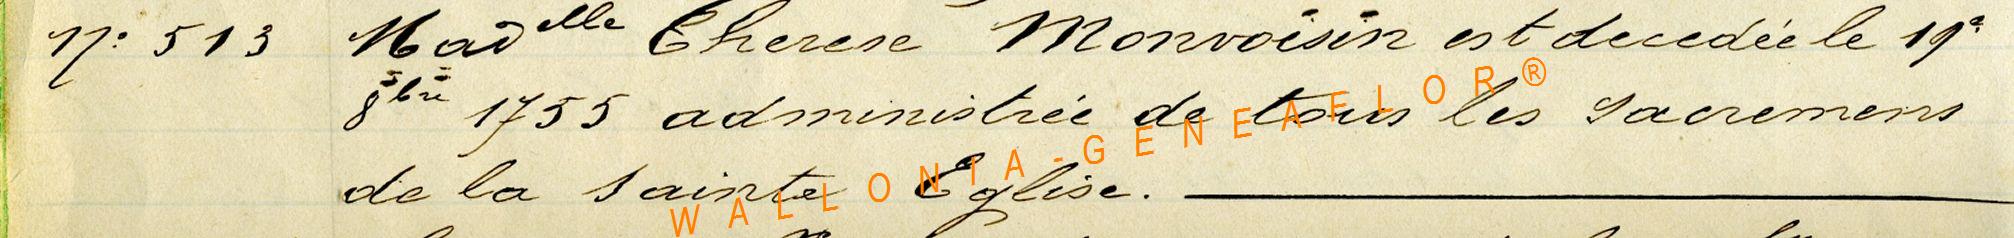 N° 513 Mad elle Therese Monvoisin est decedée le 19e
8bre 1755 administrée de tous les sacremens
de la sainte Eglise.
WALLONIA-GENEAFLOR®